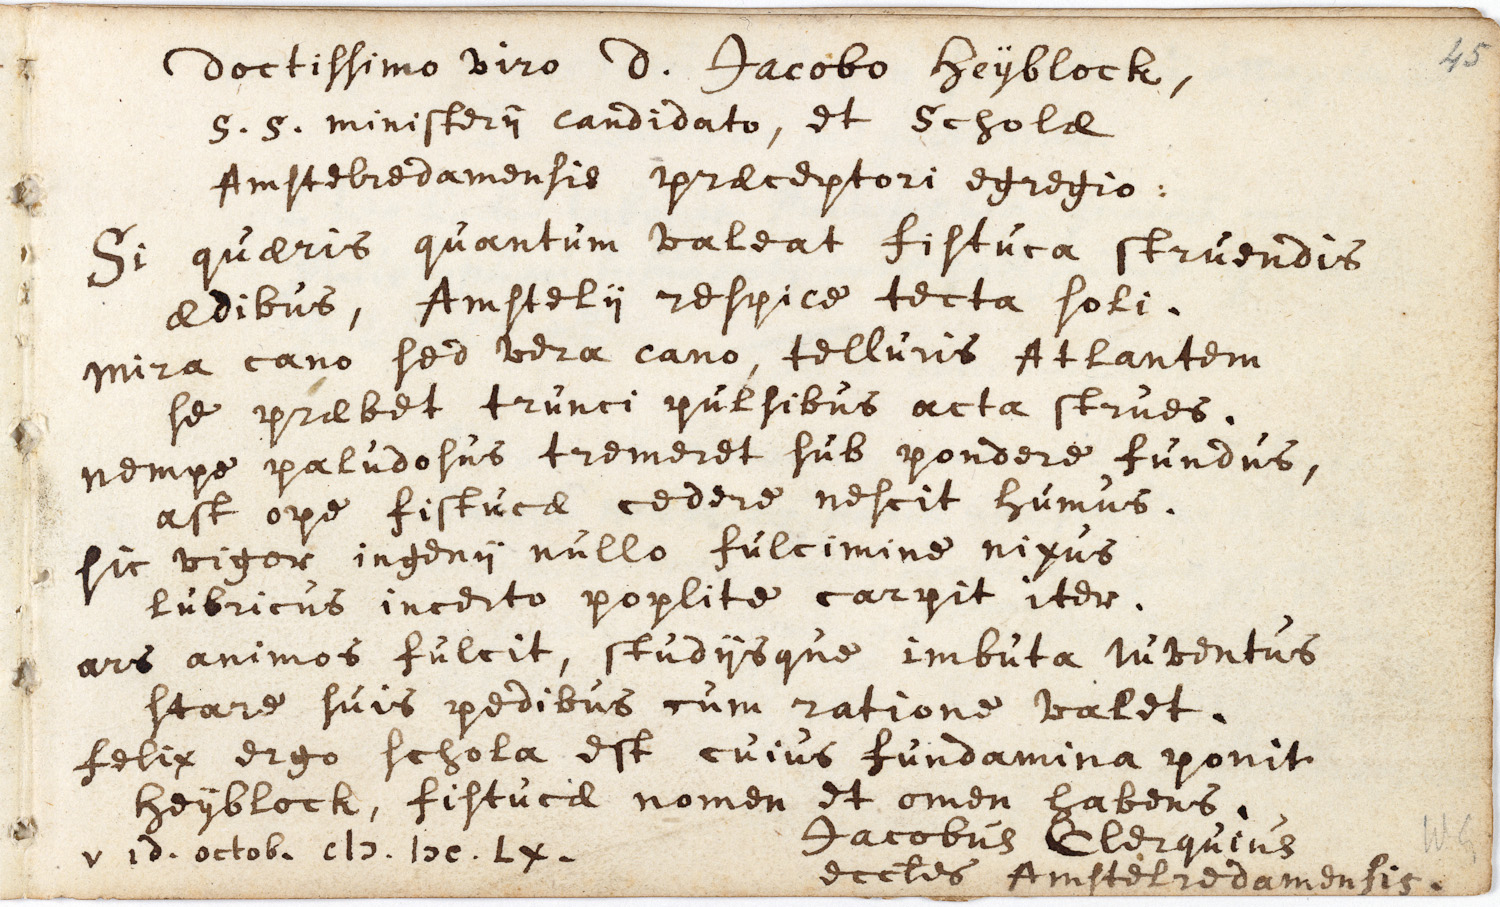 Doctissimo viro D. Jacobo Heÿblock,
45
S. S. ministerij candidato, et Scholæ
Amstelredamensis præceptori egregio:
Si quæris quantum valeat fistuca struendis
ædibus, Amstelij respice tecta soli.
mira cano sed vera cano, telluris Atlantem
se præbet trunci pulsibus acta strues.
nempe paludosus tremeret sub pondere fundus,
ast ope fistucæ cedere nescit humus.
sic vigor ingenij nullo fulcimine nixus
lubricus incerto poplite carpit iter.
ars animos fulcit, studijsque imbuta iuventus
stare suis pedibus cum ratione valet.
felix ergo schola est cuius fundamina ponit
Heÿblock, fistucæ nomen et omen habens.
v id. octob. cIɔ. Iɔc. Lx.
Jacobus Clerquius
eccles Amstelredamensis.